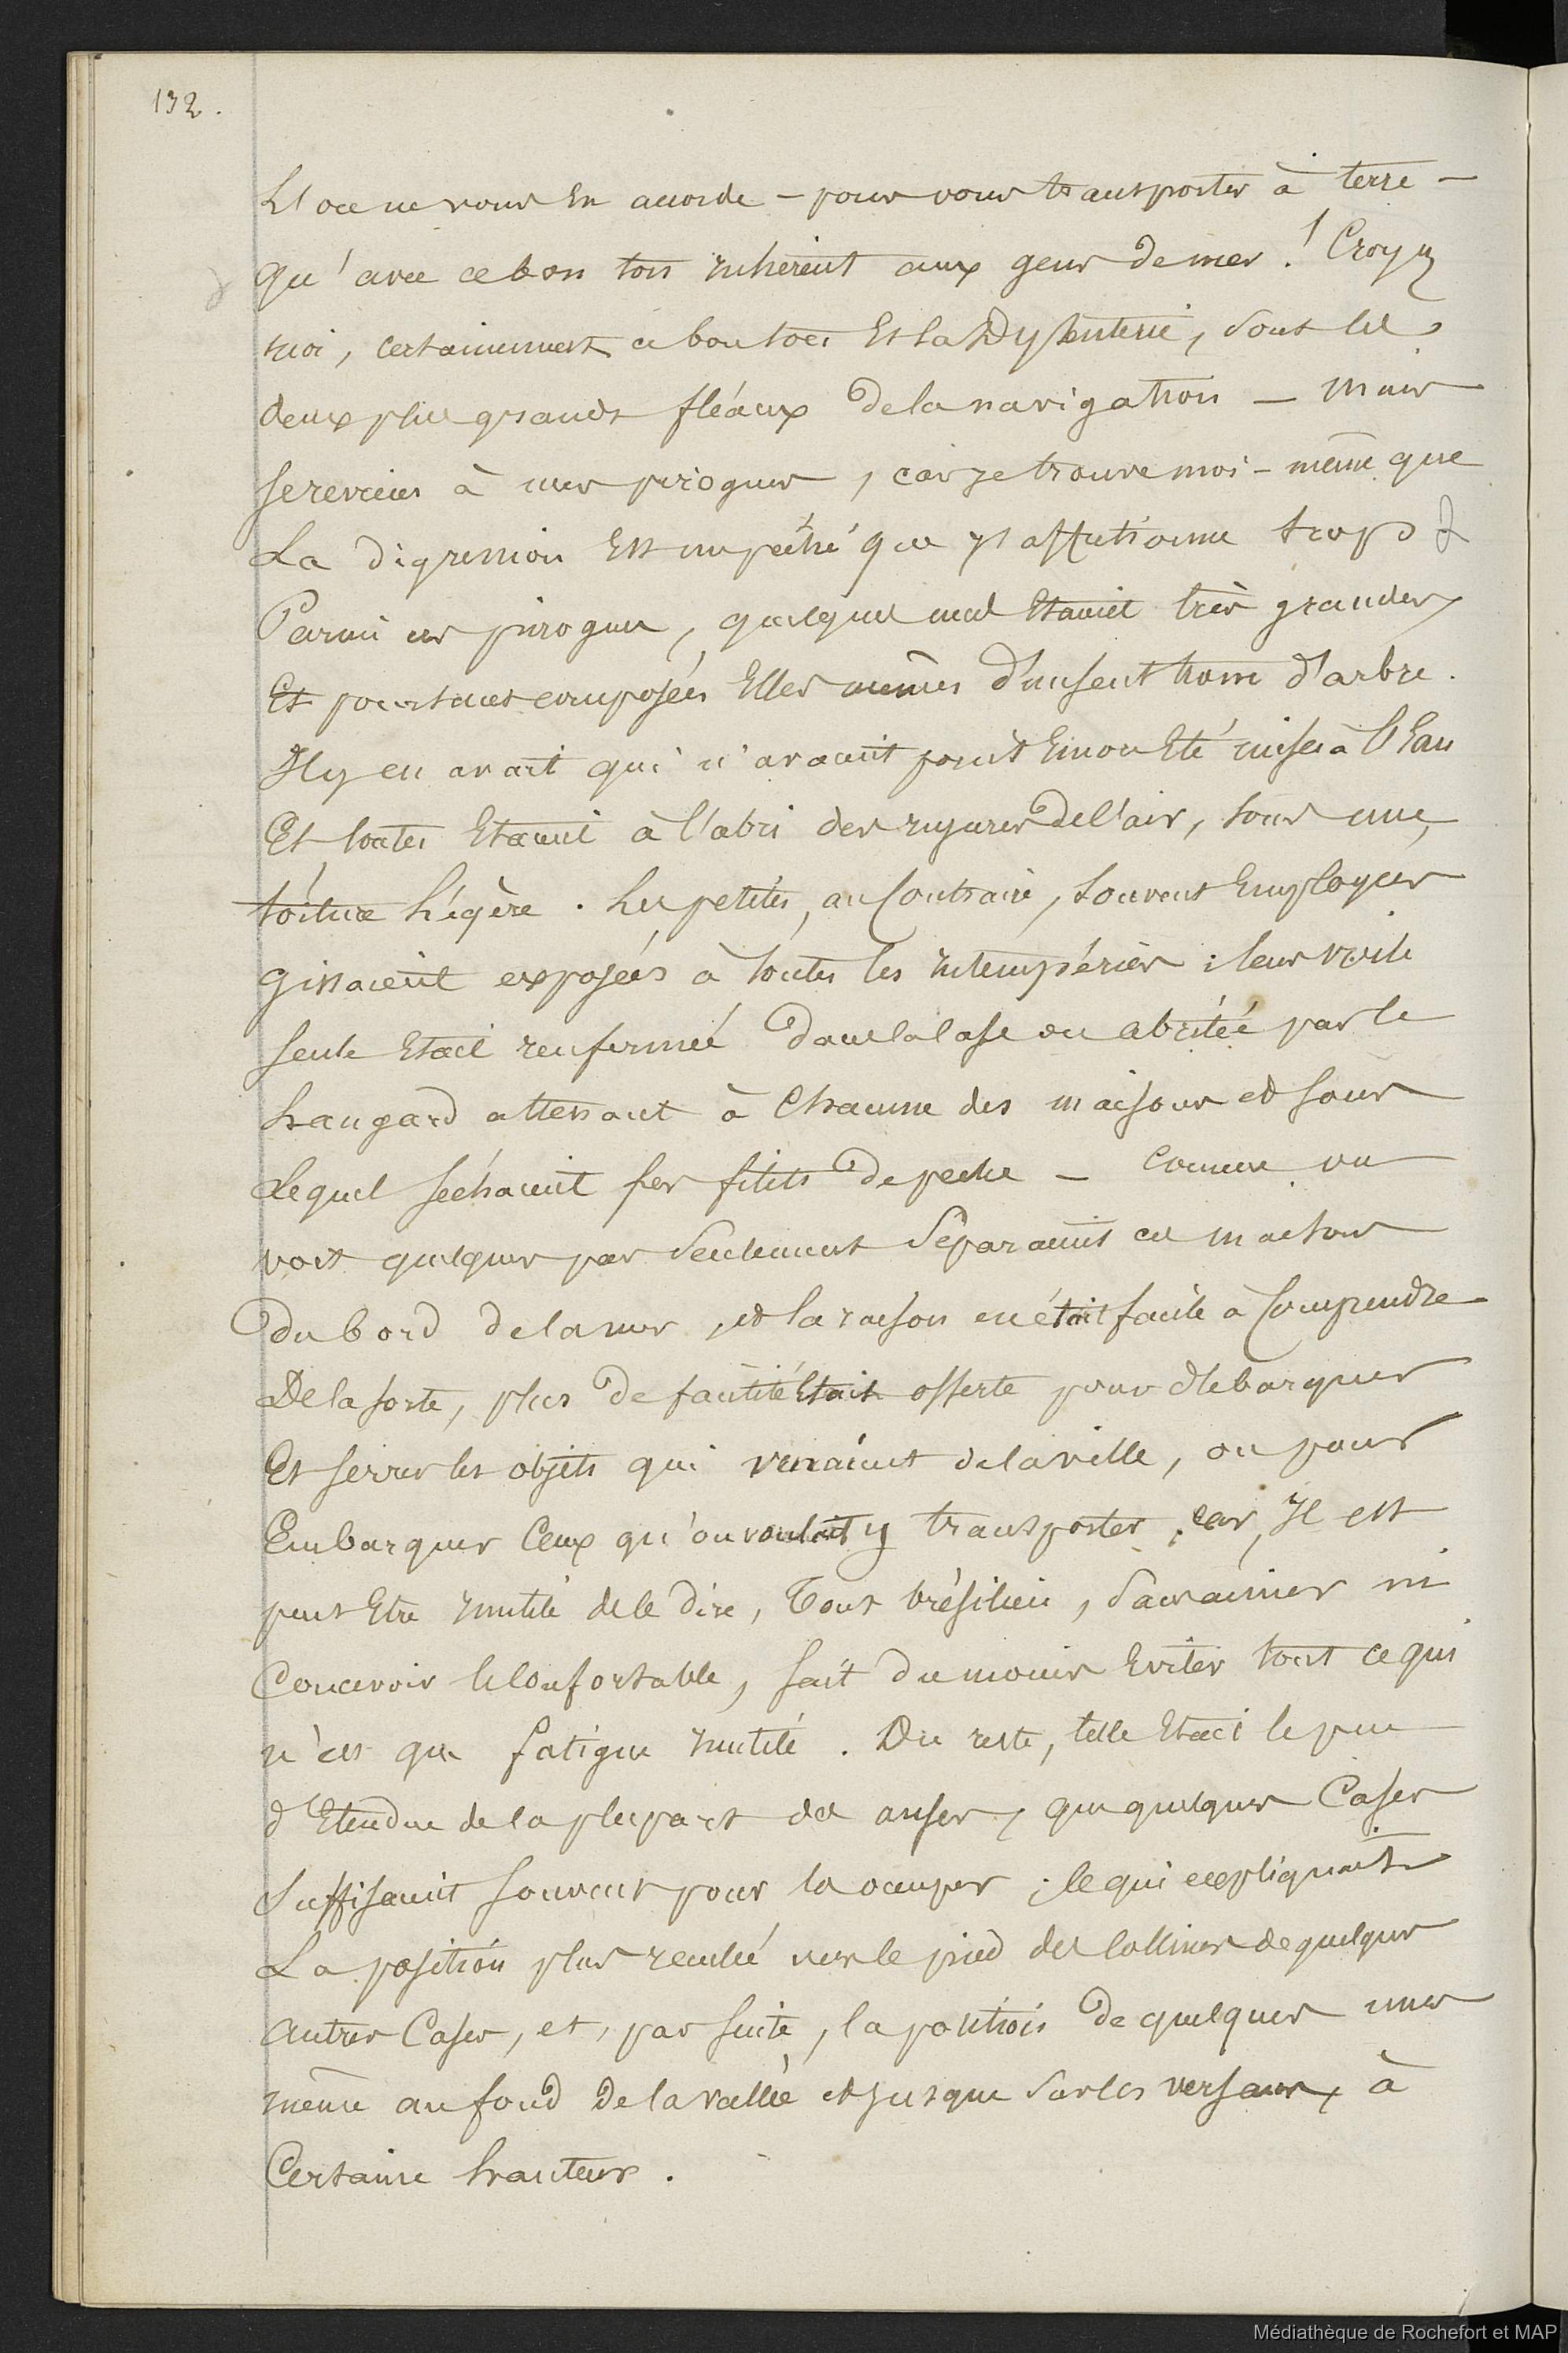 132.
Et on ne vous en accorde – pour vous transporter à terre –
qu'avec ce bon ton inhérent aux gens de mer ! Croyez
moi, certainement ce bon ton Et la Dyssenterie, sont les
deux plus grands fléaux de la navigation – Mais
je reviens à mes pirogues, car je trouve moi-même que
La digression Est un péché que j'affectionne trop
Parmi ces pirogues, quelques unes Etaient très grandes,
Et pourtant composées Elles mêmes d'un seul tronc d'arbre.
Il y en avait qui n'avaient point Encore Eté mises à l'Eau
Et toutes Etaient à l'abri des injures de l'air, sous une
toiture légère. Les petites, au Contraire, souvent Employées
gissaient exposées à toutes les intempéries ; leur voile
seule Etait renfermée dans la Case ou abritée par le
hangard attenant à Chacune des maisons et sous
Lequel séchaient les filets de peche – Comme on
voit quelques pas seulement séparaient ces maisons
du bord de la mer, et la raison en était facile à Comprendre
De la sorte, plus de facilité Etait offerte pour débarquer
Et serrer les objets qui venaient de la ville, ou pour
Embarquer Ceux qu'on voulait y transporter ; car, Il est
peut Etre inutile de le dire, Tout brésilien, sans aimer ni
Concevoir le Confortable, sait du moins Eviter tout ce qui
n'est que fatigue inutile. Du reste, telle Etait le peu
d'Etendue de la plupart des anses, que quelques Cases
Suffisaient souvent pour la occuper ; Ce qui expliquait
La position plus reculée vers le pied des Collines de quelques
autres Cases, et, par suite, la position de quelques unes
même au fond de la vallée et jusque sur les versans, à
Certaine hauteur.
Médiathèque de Rochefort et MAP